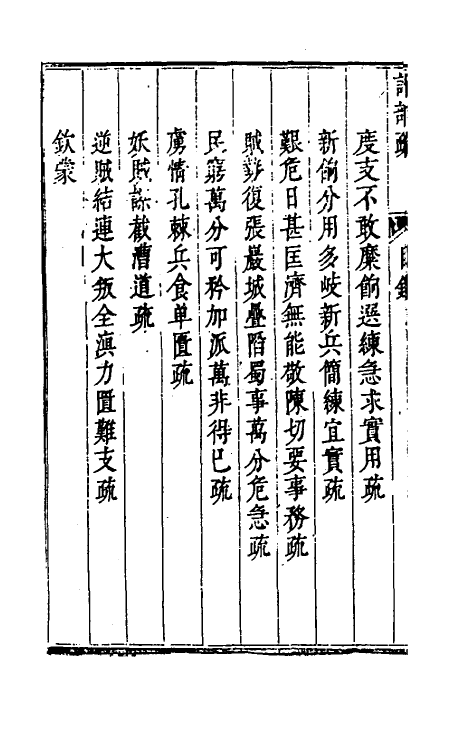 度支不敢糜餉選練急求實用疏
新餉分用多岐新兵簡練宜實疏
艱危日甚匡濟無能敬陳切要事務疏
賊勢復張嚴城疊陷蜀事萬分危急疏
民窮萬分可矜加派萬非得已疏
虜情孔棘兵食单匱疏
妖賊謀截漕道疏
逆賊結連大叛全滇力匱難支疏
欽蒙